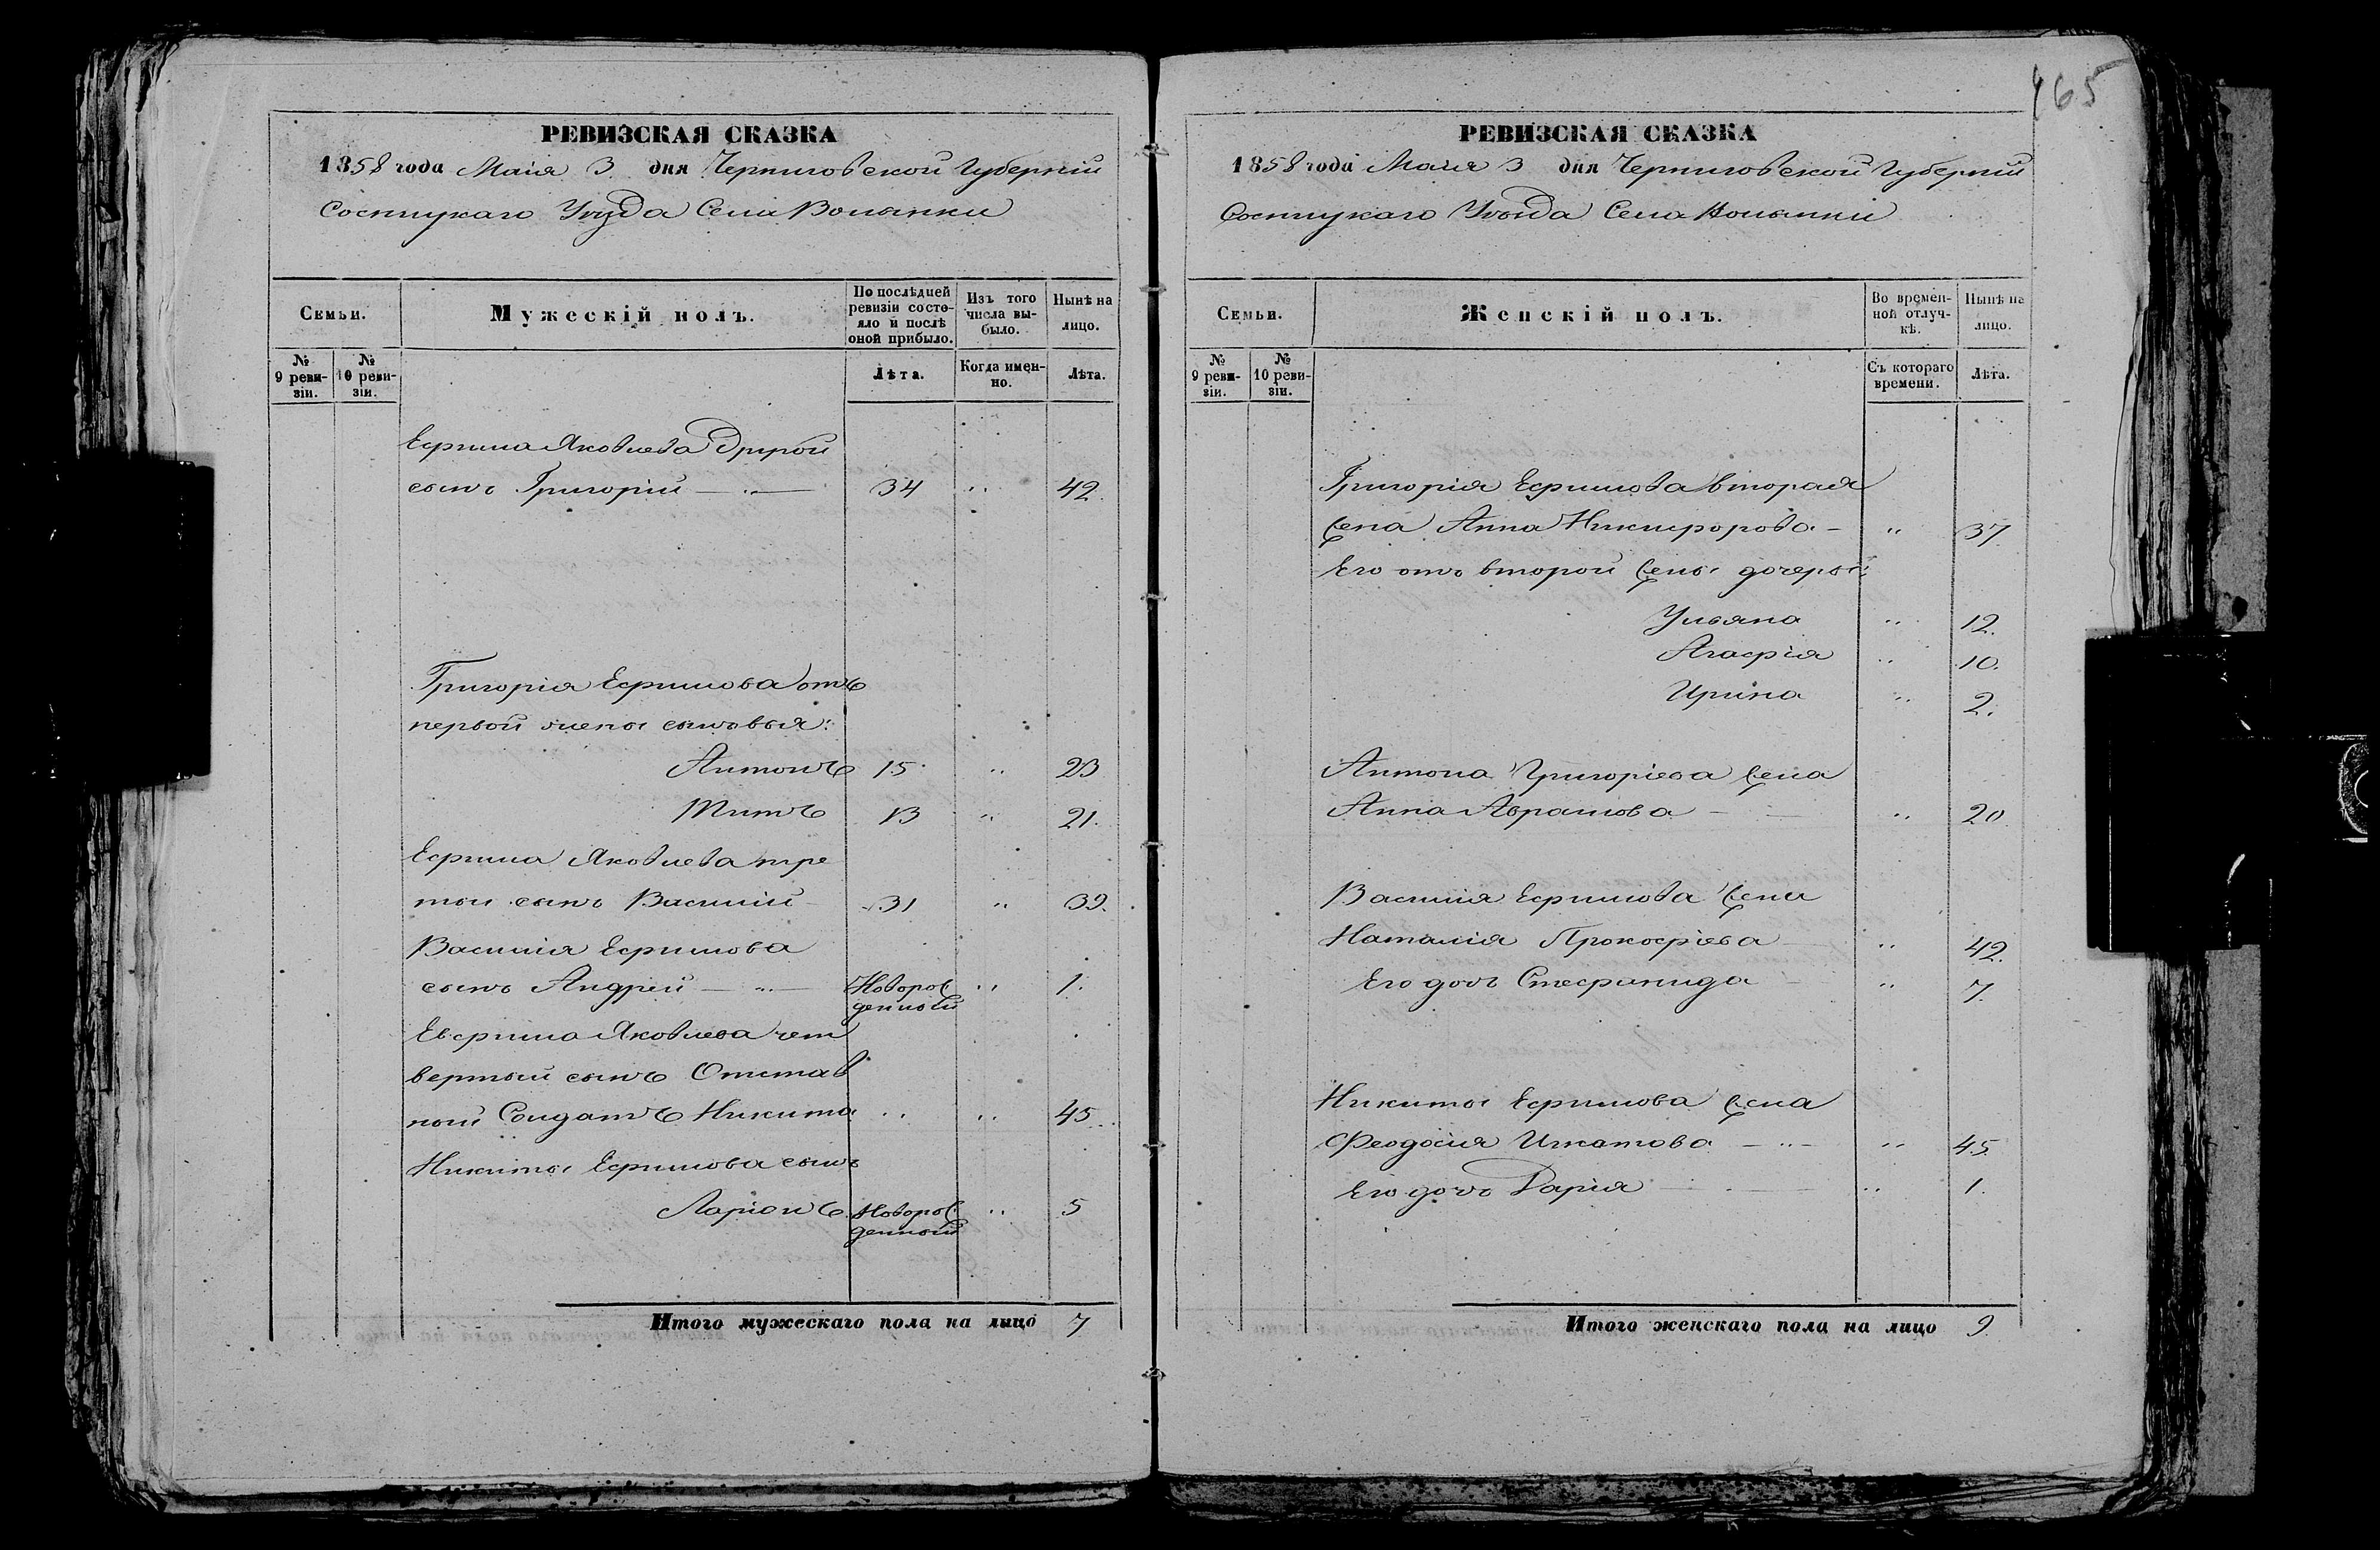 465
РЕВИЗСКАЯ СКАЗКА
1858 года Маія 3 дня Черниговской Губерніи
Сосницкаго Уѣзда Села Волынки
Семьи.
Мужескій полъ.
По послѣдней ревизіи состояло и послѣ оной прибыло.
Изъ того числа выбыло.
Нынѣ на лицо.
№ 9 ревизіи.
№ 10 ревизіи.
Лѣта.
Когда именно.
Лѣта.
Ефима Яковлева Другой
сынъ Григорій — „ — 34 „ 42.
Григорія Ефимова отъ
первой жены сыновья:
Антонъ 15 „ 23
Титъ 13 „ 21.
Ефима Яковлева тре
тій сынъ Василій 31 „ 39.
Василія Ефимова
сынъ Андрей — „ — Новорож „ 1.
денный
Евфима Яковлева чет
вертый сынъ Отстав
ной Солдатъ Никита „ „ 45
Никиты Ефимова сынъ
Ларіонъ Новорож „ 5
денный
Итого мужескаго пола на лицо 7
РЕВИЗСКАЯ СКАЗКА
1858 года Маія 3 дня Черниговской Губерніи
Сосницкаго Уѣзда Села Волынки
Семьи.
Женскій полъ.
Во временной отлучкѣ.
Нынѣ на лицо.
№ 9 ревизіи.
№ 10 ревизіи.
Съ котораго времени.
Лѣта.
Григорія Ефимова вторая
жена Анна Никифорова — „ 37.
Его отъ второй жены дочеры:
Ульяна „ 12.
Агафія „ 10.
Ирина „ 2.
Антона Григоріева жена
Анна Аврамова — „ 20
Василія Ефимова жена
Наталія Прокофіева „ 42.
Его дочь Стефанида „ 7.
Никиты Ефимова жена
Феодосія Игнатова — „ — „ 45.
Его дочь Дарія — „ 1.
Итого женскаго пола на лицо 9.